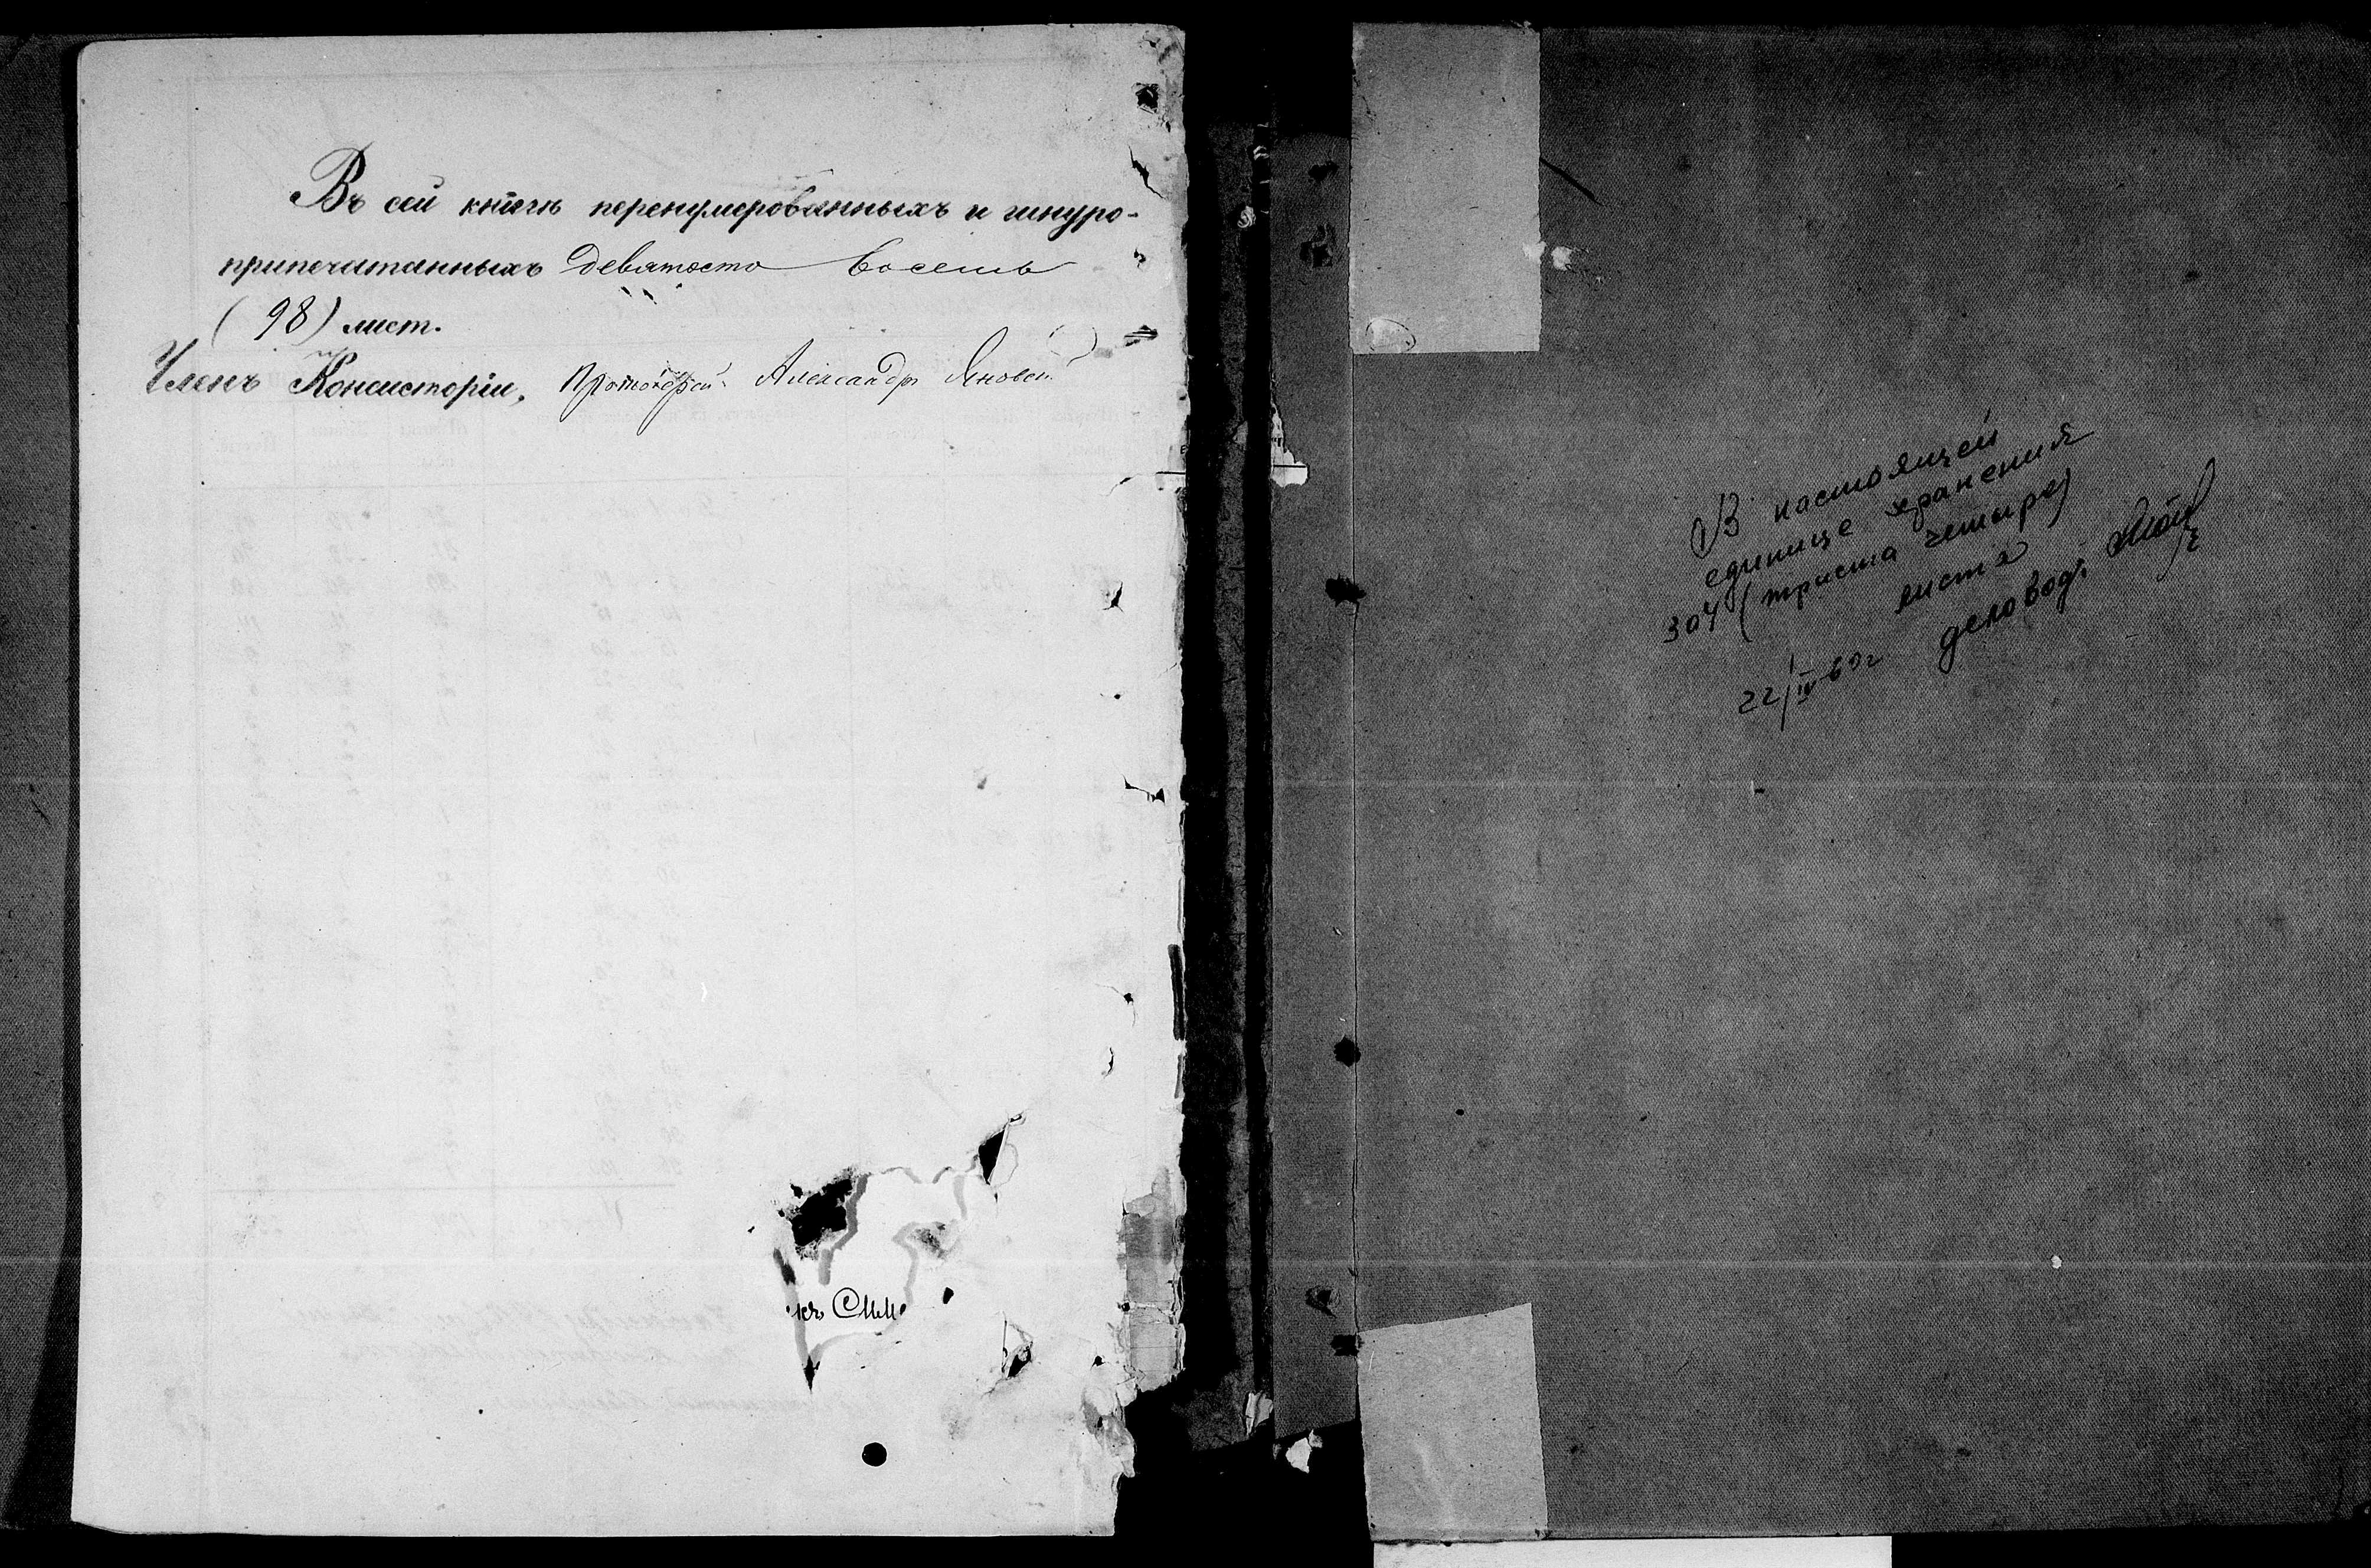 Въ сей книгѣ перенумерованныхъ и шнуро-
припечатанныхъ девяносто восемь
(98) лист.
Членъ Консисторіи, Протоіерей Александръ Яновскій
въ
В настоящей
единице хранения
304 (триста четыре)
листа
22/IV 60г деловод.